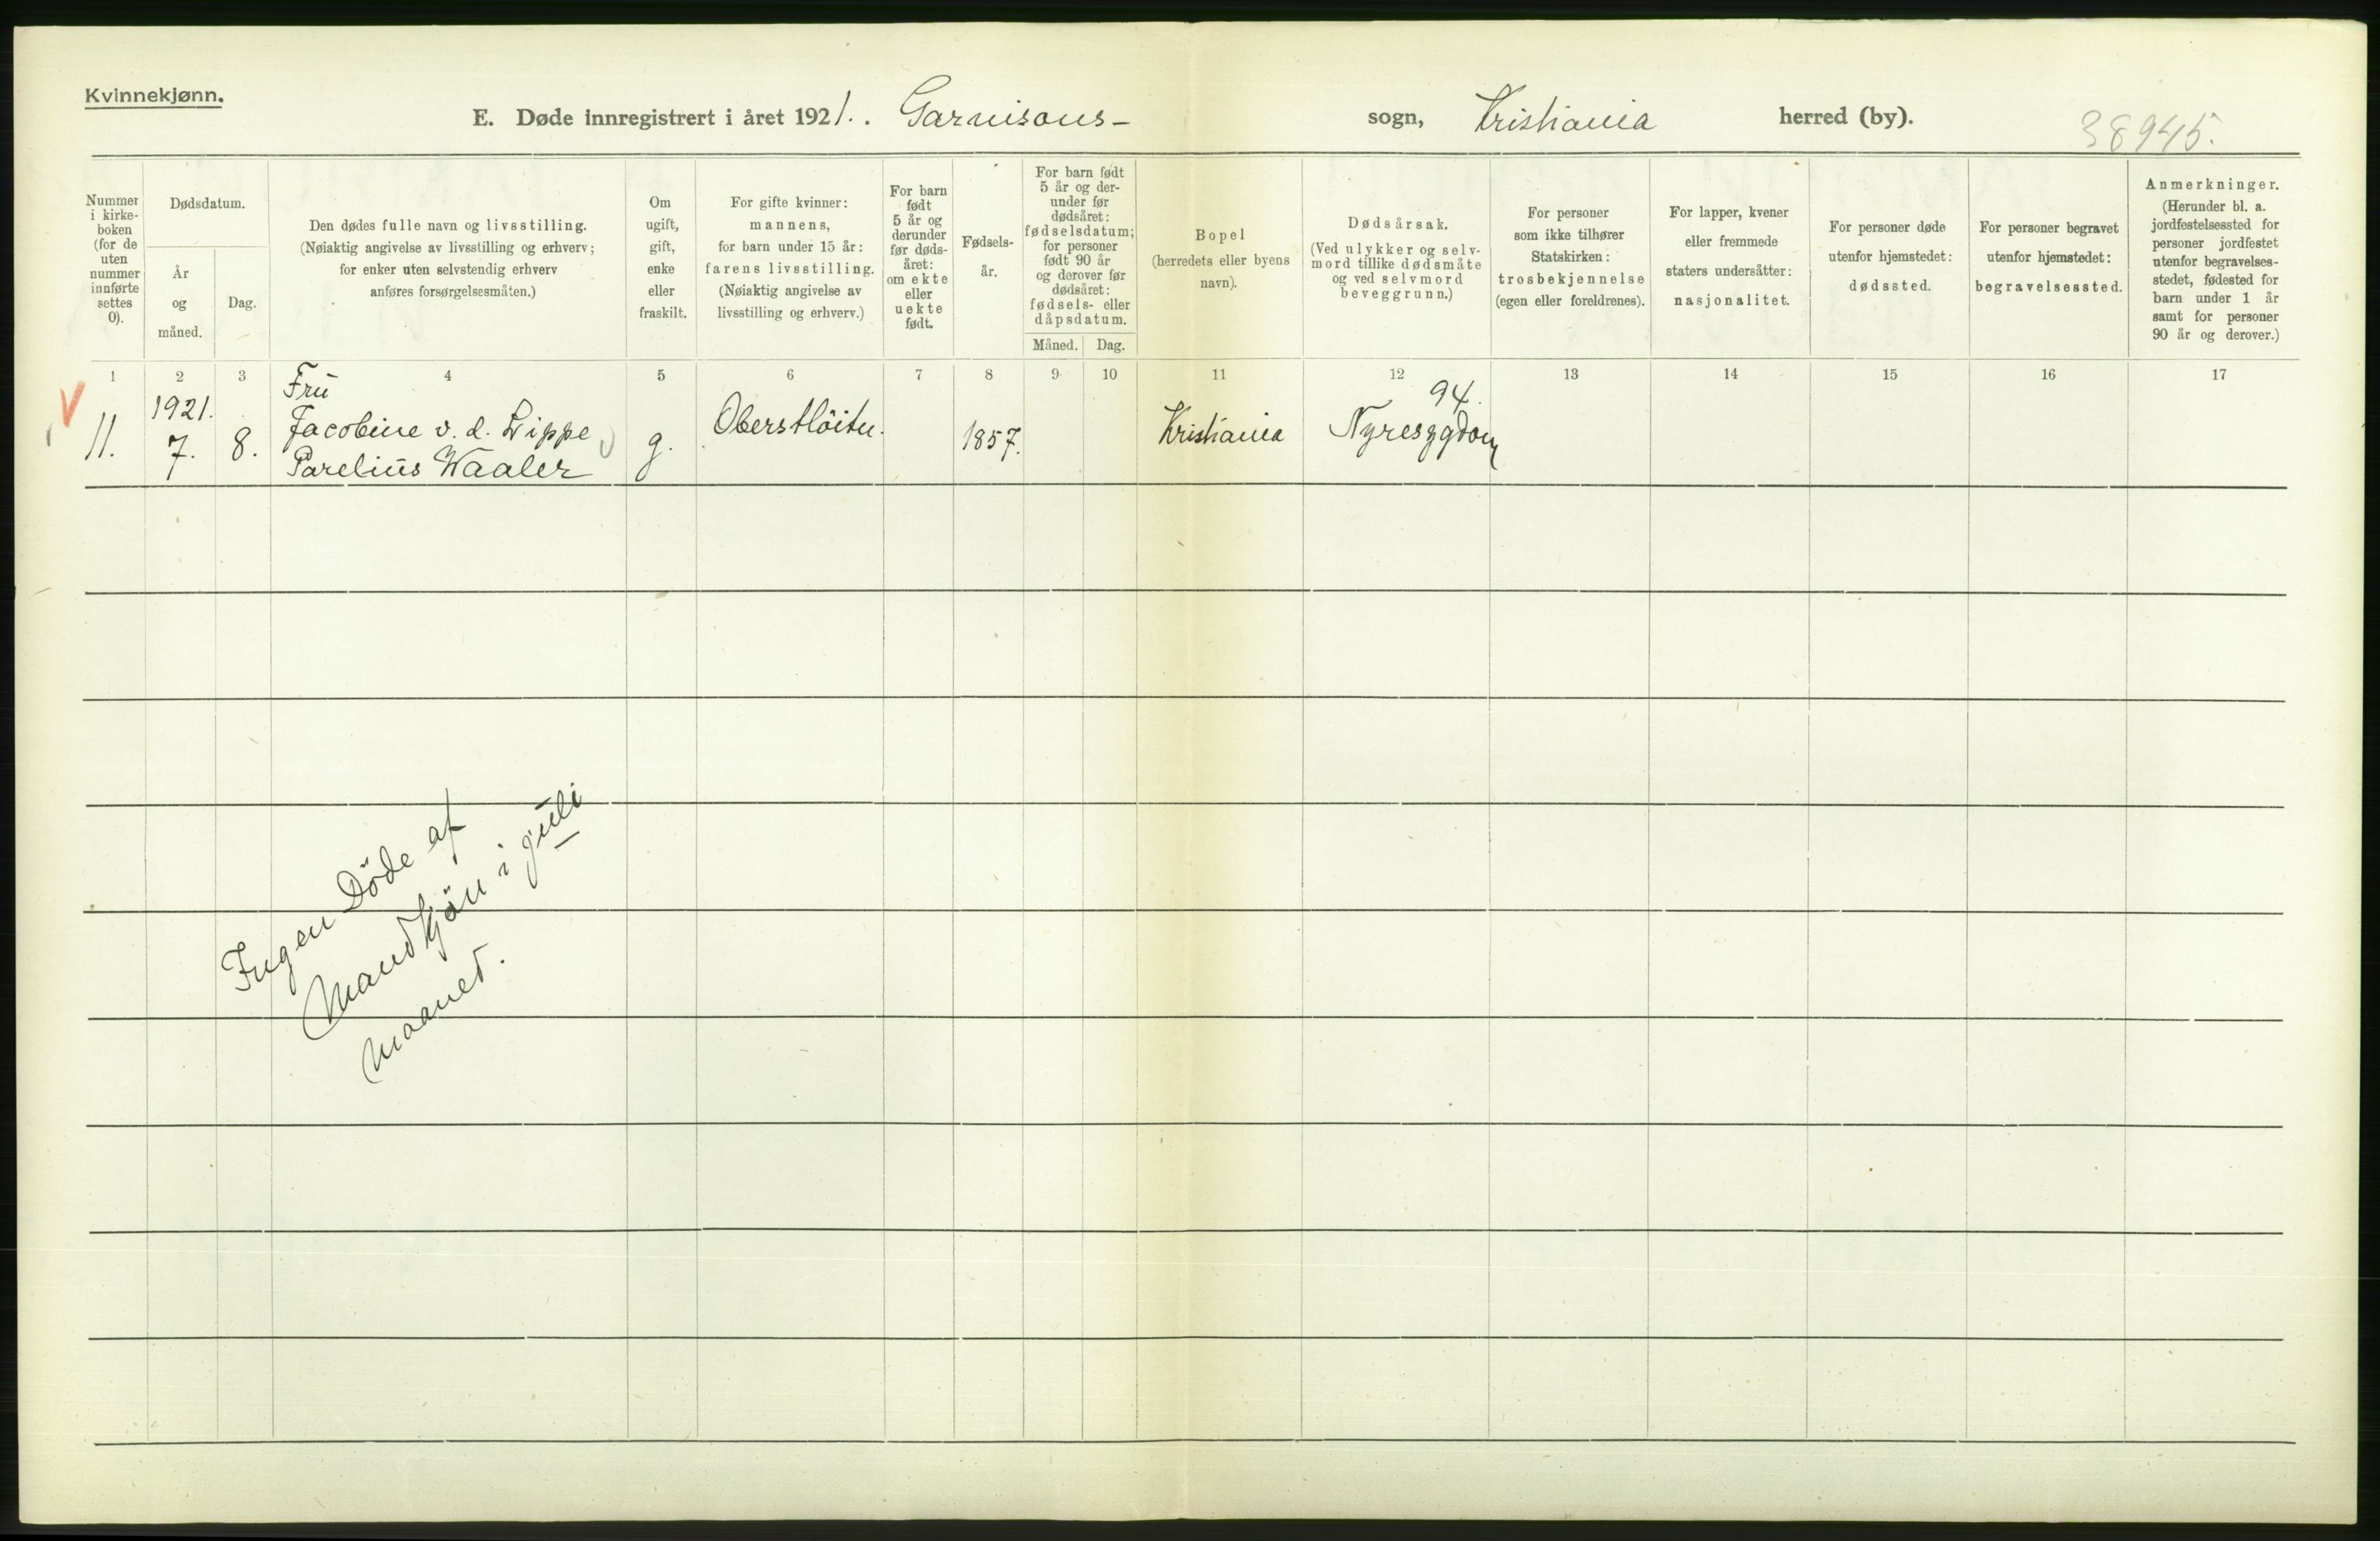 Kvinnekjønn.
E. Døde innregistrert i året 1921. Garnisons- sogn, Kristiania herred (by). 38945.
Nummer i kirke-boken (for de uten nummer innførte settes 0).
Dødsdatum.
År og måned.
Dag.
Den dødes fulle navn og livsstilling.
(Nøiaktig angivelse av livsstilling og erhverv;
for enker uten selvstendig erhverv
anføres forsørgelsesmåten.)
Om
ugift,
gift,
enke
eller
fraskilt.
For gifte kvinner:
mannens,
for barn under 15 år:
farens livsstilling.
(Nøiaktig angivelse av
livsstilling og erhverv.)
For barn
født
5 år og
derunder
før døds-
året:
om ekte
eller
uekte
født.
Fødsels-
år.
For barn født
5 år og der-
under før
dødsåret:
fødselsdatum;
for personer
født 90 år
og derover før
dødsåret:
fødsels- eller
dåpsdatum.
Måned. Dag.
Bopel
(herredets eller byens
navn).
Dødsårsak.
(Ved ulykker og selv-
mord tillike dødsmåte
og ved selvmord
beveggrunn.)
For personer
som ikke tilhører
Statskirken:
trosbekjennelse
(egen eller foreldrenes).
For lapper, kvener
eller fremmede
staters undersåtter:
nasjonalitet.
For personer døde
utenfor hjemstedet:
dødssted.
For personer begravet
utenfor hjemstedet:
begravelsessted.
Anmerkninger.
(Herunder bl. a.
jordfestelsessted for
personer jordfestet
utenfor begravelses-
stedet, fødested for
barn under 1 år
samt for personer
90 år og derover.)
1 2 3 4 5 6 7 8 9 10 11 12 13 14 15 16 17
V
11.
1921.
7.
8.
Fru
Jacobine v. d. Lippe
Parelius Waaler
g.
Oberstlöitn.
1857.
Kristiania
94.
Nyresygdom
Ingen Döde af
Mandkjön i juli
Maaned.